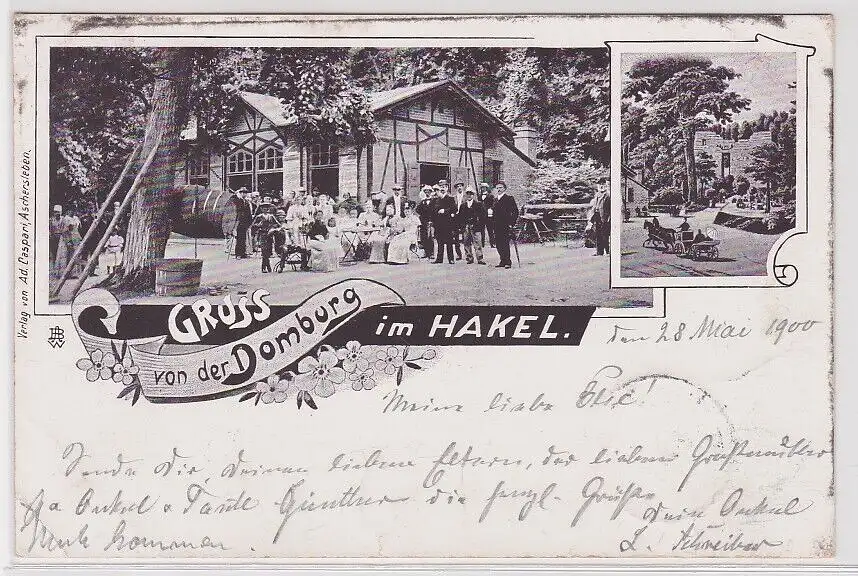 GRUSS
von der Domburg
im HAKEL.
Verlag von Ad. Caspari, Aschersleben.
den 28 Mai 1900
Meine liebe
Sende Dir, Deinen lieben Eltern, der lieben Großmutter
Onkel u Tante Günther die herzl. Grüße
Dein Onkel
kommen. L. Schreiber